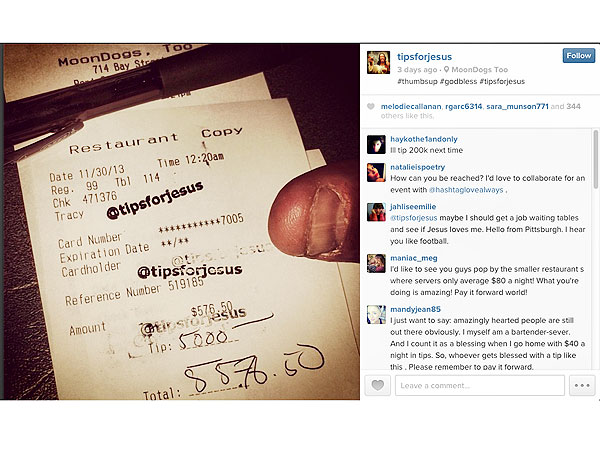 MoonDogs, Too
714 Bay Street
Restaurant Copy
Date 11/30/13 Time 12:20am
Reg. 99 Tbl 114
Chk 471376
Tracy
@tipsforjesus
Card Number ***********7005
Expiration Date **/**
Cardholder
@tipsforjesus
Reference Number 519185
$576.50
Amount
@tipsforjesus
Tip: 5000
Total: 5576.50
tipsforjesus
Follow
3 days ago · MoonDogs Too
#thumbsup #godbless #tipsforjesus
melodiecallanan, rgarc6314, sara_munson771 and 344
others like this.
haykothe1andonly
Ill tip 200k next time
natalieispoetry
How can you be reached? I'd love to collaborate for an
event with @hashtaglovealways .
jahliseemilie
@tipsforjesus maybe I should get a job waiting tables
and see if Jesus loves me. Hello from Pittsburgh. I hear
you like football.
maniac_meg
I'd like to see you guys pop by the smaller restaurant s
where servers only average $80 a night! What you're
doing is amazing! Pay it forward world!
mandyjean85
I just want to say: amazingly hearted people are still
out there obviously. I myself am a bartender-sever.
And I count it as a blessing when I go home with $40 a
night in tips. So, whoever gets blessed with a tip like
this . Please remember to pay it forward.
Leave a comment...